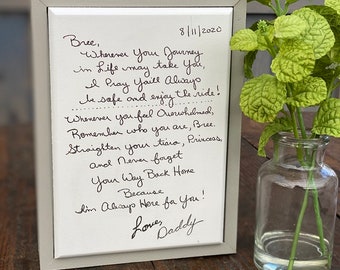 8/11/2020
Bree,
Wherever Your Journey
in Life may take You,
I Pray You'll Always
be safe and enjoy the ride!
Whenever You feel Overwhelmed,
Remember who you are, Bree.
Straighten your tiara, Princess,
and Never forget
Your Way Back Home
Because
I'm Always Here for You!
Love,
Daddy